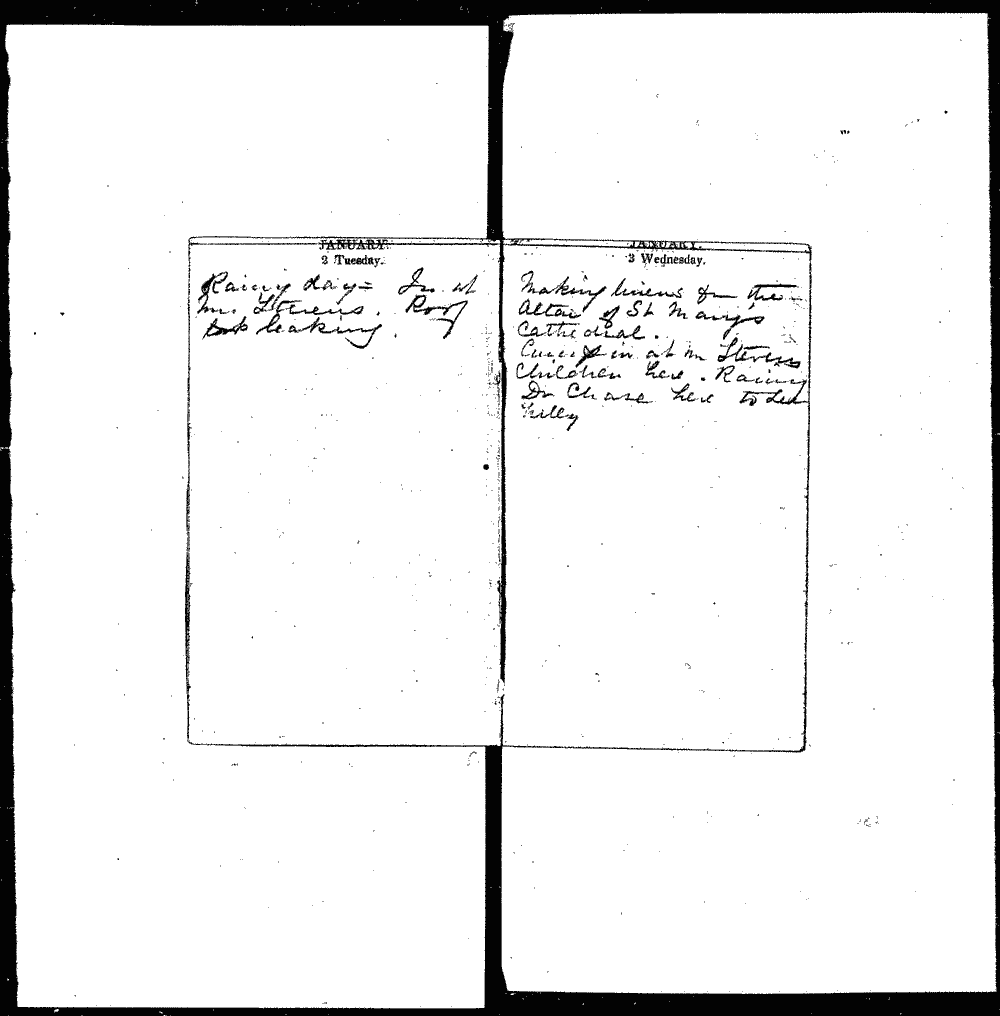 JANUARY.
2 Tuesday.
Rainy day = In at
Mr. Stevens. Roof
leaking.
JANUARY.
3 Wednesday.
Making linens for the
Altar of St Mary's
Cathedral.
in at Mr Stevens
Children here. Rainy
Dr Chase here to see